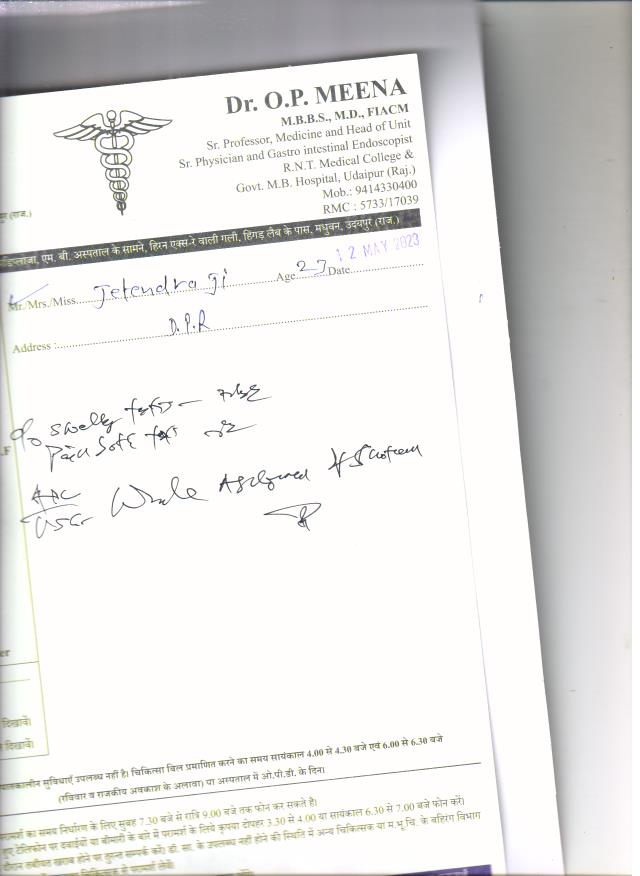 Dr. O.P. MEENA
M.B.B.S., M.D., FIACM
Sr. Professor, Medicine and Head of Unit
Sr. Physician and Gastro intestinal Endoscopist
R.N.T. Medical College &
Govt. M.B. Hospital, Udaipur (Raj.)
Mob.: 9414330400
RMC : 5733/17039
पुर (राज.)
एम. बी. अस्पताल के सामने, हिरन एक्स-रे वाली गली, हिंगड़ लैब के पास, मधुवन, उदयपुर (राज.)
Mr./Mrs./Miss Jetendra Ji Age 27 Date 12 MAY 2023
Address : D.P.R
c/o swelly
Pain both
USG Whole
दिखावें।
दिखावें।
कालीन सुविधाएँ उपलब्ध नहीं है। चिकित्सा बिल प्रमाणित करने का समय सायंकाल 4.00 से 4.30 बजे एवं 6.00 से 6.30 बजे
(रविवार व राजकीय अवकाश के अलावा) या अस्पताल में ओ.पी.डी. के दिन।
परामर्श का समय निर्धारण के लिए सुबह 7.30 बजे से रात्रि 9.00 बजे तक फोन कर सकते है।
हुए टेलिफोन पर दवाईयों या बीमारी के बारे में परामर्श के लिये कृपया दोपहर 3.30 से 4.00 या सायंकाल 6.30 से 7.00 बजे फोन करें।
दौरान तबीयत खराब होने पर तुरन्त सम्पर्क करें। डॉ. सा. के उपलब्ध नहीं होने की स्थिति में अन्य चिकित्सक या म.भू.चि. के बहिरंग विभाग
चिकित्सक से परामर्श लेवें।